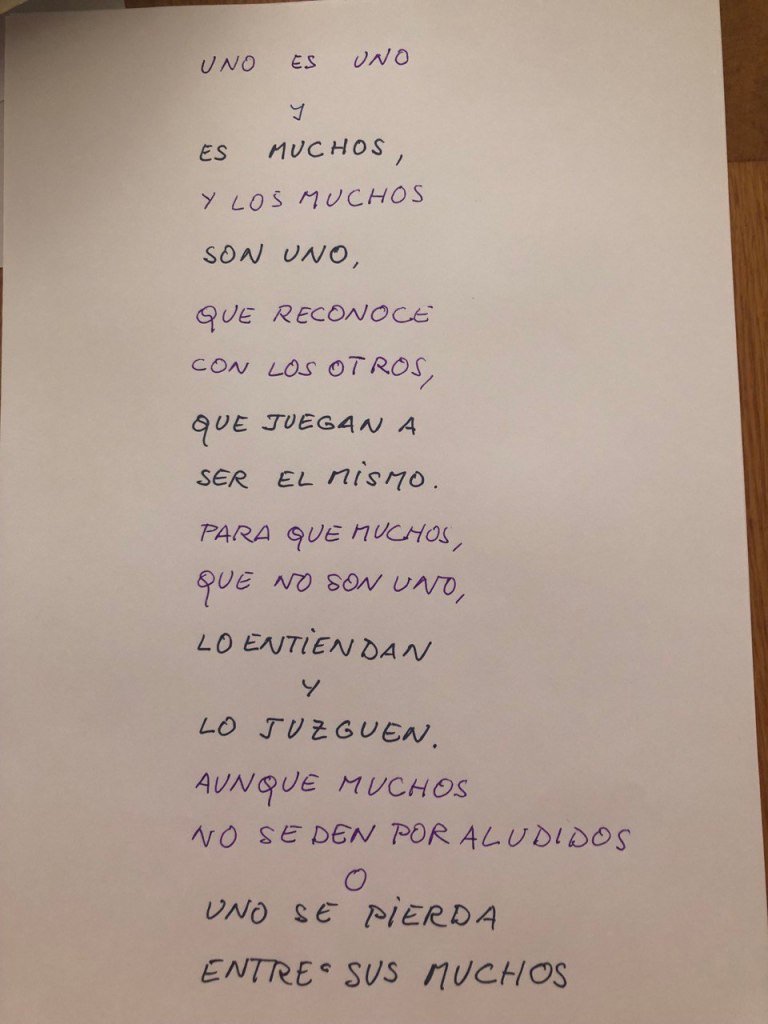 UNO ES UNO
Y
ES MUCHOS,
Y LOS MUCHOS
SON UNO,
QUE RECONOCE
CON LOS OTROS,
QUE JUEGAN A
SER EL MISMO.
PARA QUE MUCHOS,
QUE NO SON UNO,
LO ENTIENDAN
Y
LO JUZGUEN.
AUNQUE MUCHOS
NO SE DEN POR ALUDIDOS
O
UNO SE PIERDA
ENTRE SUS MUCHOS